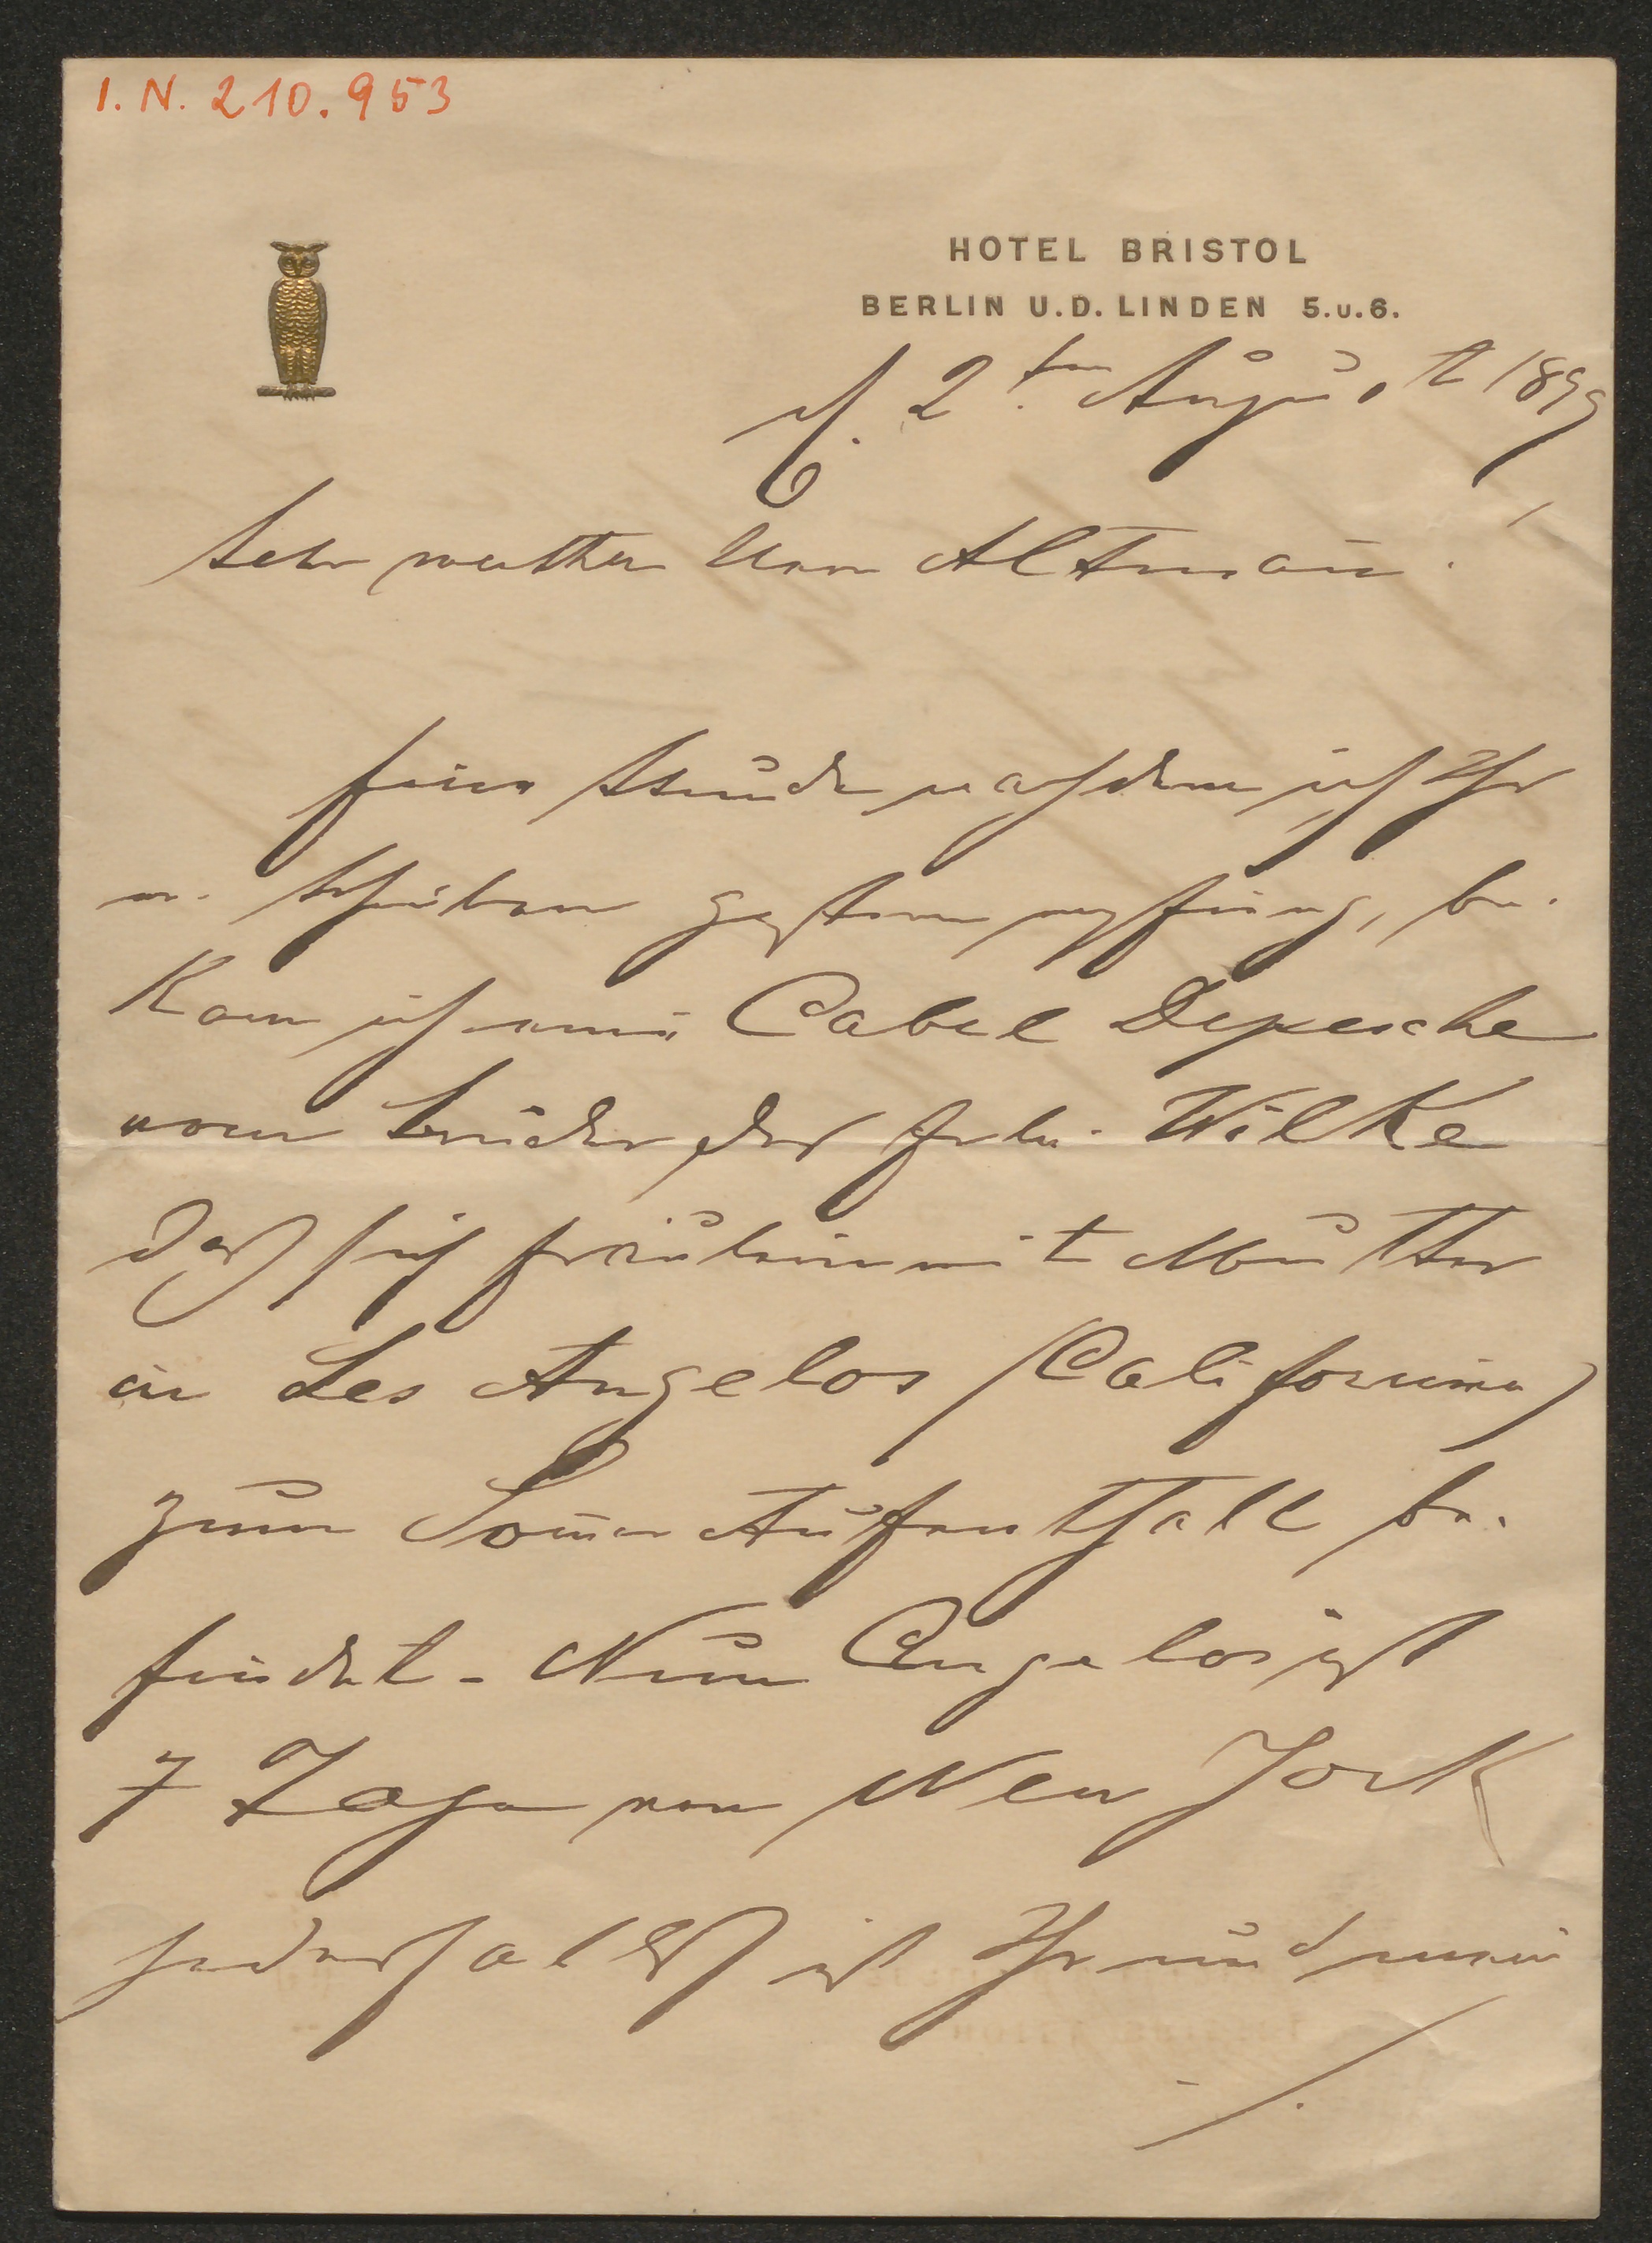 I. N. 210.953
HOTEL BRISTOL
BERLIN U.D. LINDEN 5.u.6.
2ten Augustt 1899
Sehr werther Herr Altmañ!
Eine Stunde nachdem ich Ihr
w. Schreiben gestern empfing, be-
kam ich eine Cabel Depesche
vom Bruder des Frln. Wilke
daß sich Fräulein mit Mutter
in Les Angelos (California)
zum Som̄er Aufenthalt be-
findet. Nun Angelos ist
7 Tage von New York
jedesfalls ist Ihr und mein